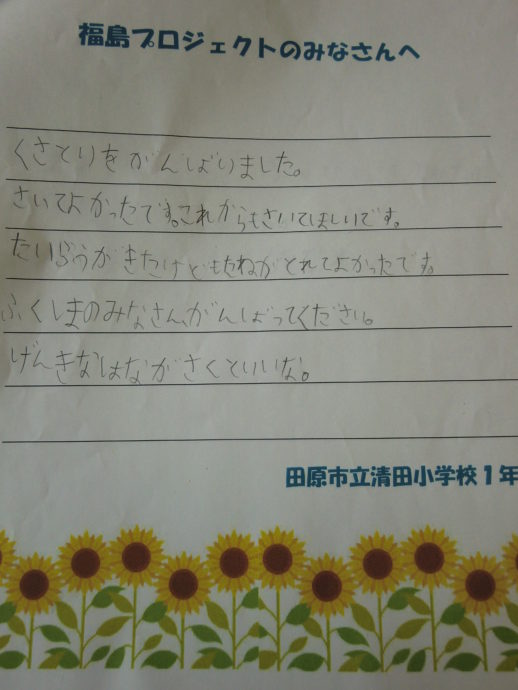 福島プロジェクトのみなさんへ
くさとりをがんばりました。
さいてよかったです。これからもさいてほしいです。
たいふうがきたけどもたねがとれてよかったです。
ふくしまのみなさん、がんばってください。
げんきなはながさくといいな。
田原市立清田小学校1年